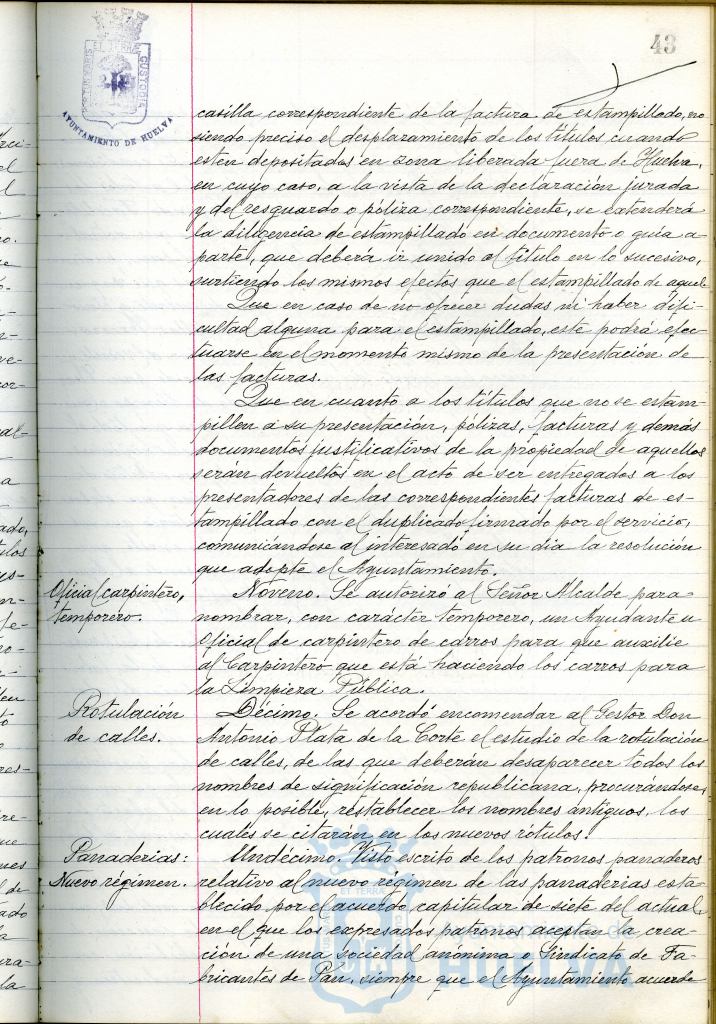 43
PORTUS MARIS
ET TERRÆ
CUSTODIA
AYUNTAMIENTO DE HUELVA
casilla correspondiente de la factura de estampillado, no
siendo preciso el desplazamiento de los títulos cuando
esten depositados en zona liberada fuera de Huelva,
en cuyo caso, a la vista de la declaración jurada
y del resguardo o póliza correspondiente, se extenderá
la diligencia de estampillado en documento o guía a-
parte, que deberá ir unido al título en lo sucesivo,
surtiendo los mismos efectos que el estampillado de aquel.
Que en caso de no ofrecer dudas ni haber difi-
cultad alguna para el estampillado, este podrá efec-
tuarse en el momento mismo de la presentación de
las facturas.
Que en cuanto a los títulos que no se estam-
pillen a su presentación, pólizas, facturas y demás
documentos justificativos de la propiedad de aquellos
serán devueltos en el acto de ser entregados a los
presentadores de las correspondientes facturas de es-
tampillado con el duplicado firmado por el servicio,
comunicándose al interesado en su dia la resolución
que adopte el Ayuntamiento.
Oficial carpintero,
temporero.
Noveno. Se autorizó al Señor Alcalde para
nombrar, con carácter temporero, un Ayudante u
Oficial de carpintero de carros para que auxilie
al Carpintero que está haciendo los carros para
la Limpieza Pública.
Rotulación
de calles.
Décimo. Se acordó encomendar al Gestor Don
Antonio Plata de la Corte el estudio de la rotulación
de calles, de las que deberán desaparecer todos los
nombres de significación republicana, procurándose,
en lo posible, restablecer los nombres antiguos, los
cuales se citarán en los nuevos rótulos.
Panaderias:
Nuevo régimen.
Undécimo. Visto escrito de los patronos panaderos
relativo al nuevo régimen de las panaderias esta-
blecido por el acuerdo capitular de siete del actual,
en el que los expresados patronos aceptan la crea-
ción de una sociedad anónima o Sindicato de Fa-
bricantes de Pan, siempre que el Ayuntamiento acuerde
Ayuntamiento de
HUELVA